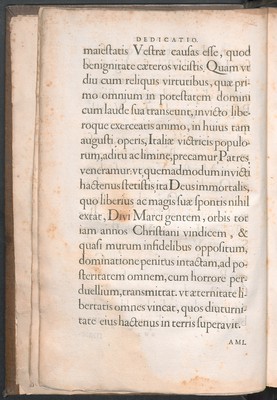 DEDICATIO.
maiestatis Vestræ causas esse, quod
benignitate cæteros vicistis. Quam vt
diu cum reliquis virtutibus, quæ pri-
mo omnium in potestatem domini
cum laude sua transeunt, invicto libe-
roque exerceatis animo, in huius tam
augusti operis, Italiæ victricis populo-
rum, aditu ac limine, precamur Patres,
veneramur. vt quemadmodum invicti
hactenus stetistis, ita Deus immortalis,
quo liberius ac magis suæ spontis nihil
extat, Divi Marci gentem, orbis tot
iam annos Christiani vindicem, &
quasi murum infidelibus oppositum,
dominatione penitus intactam, ad po-
steritatem omnem, cum horrore per-
duellium, transmittat. vt æternitate li-
bertatis omnes vincat, quos diuturni-
tate eius hactenus in terris superavit.
AMI.